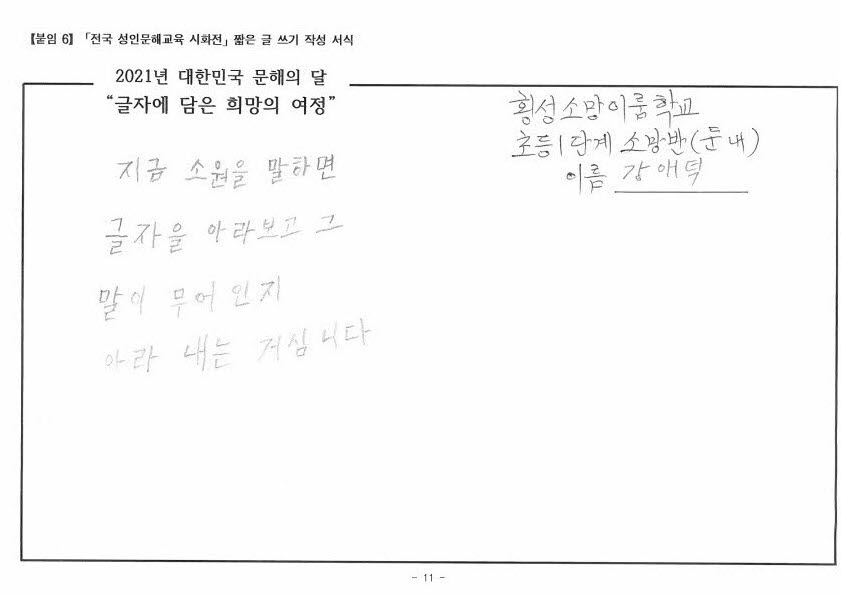 【붙임 6】「전국 성인문해교육 시화전」 짧은 글 쓰기 작성 서식
2021년 대한민국 문해의 달
“글자에 담은 희망의 여정”
횡성소망이룸학교
초등1단계 소망반(둔내)
이름 강애덕
지금 소원을 말하면
글자을 아라보고 그
말이 무어인지
아라 내는 거심니다
- 11 -